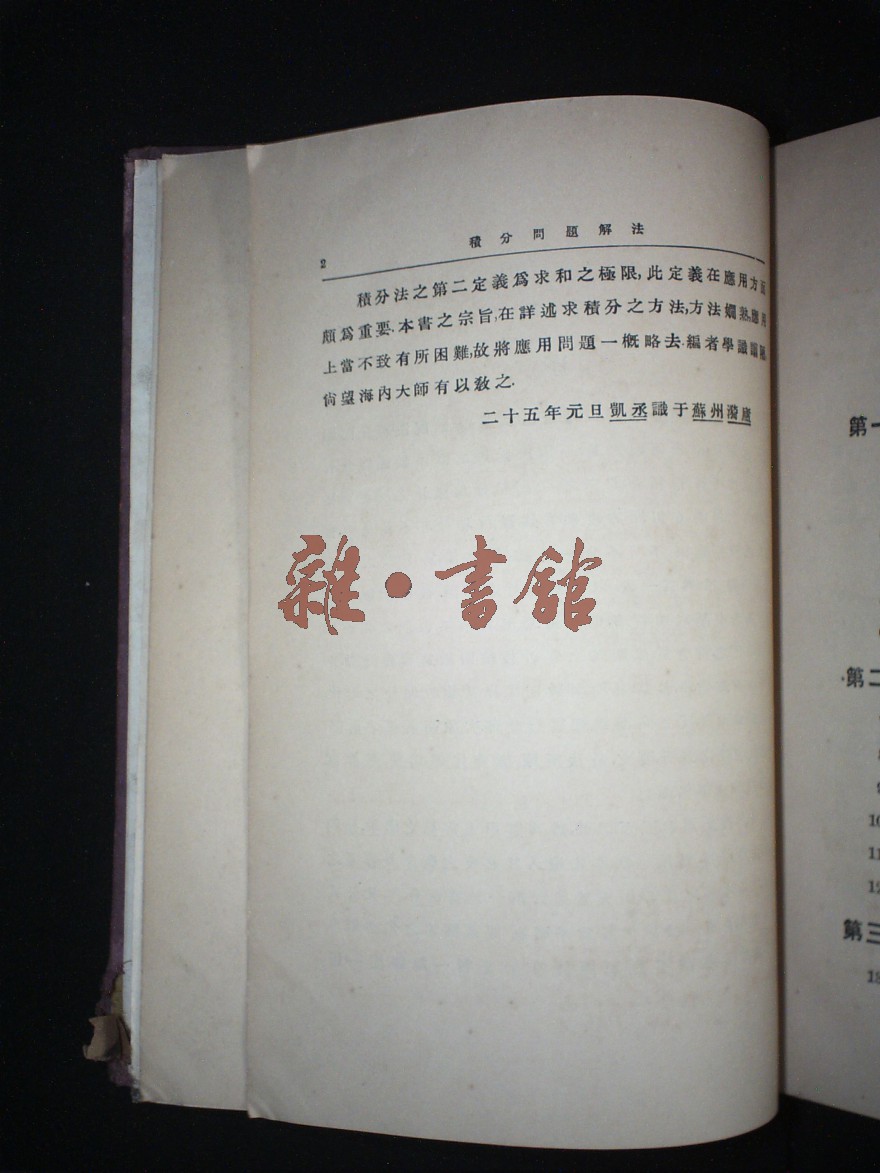 積分問題解法
2
積分法之第二定義爲求和之極限,此定義在應用方面
頗爲重要.本書之宗旨,在詳述求積分之方法,方法嫻熟,應用
上當不致有所困難,故將應用問題一概略去.編者學識謭陋,
尙望海內大師有以敎之.
二十五年元旦凱丞識于蘇州漪廬
雜•書館
第一
第二
9
10
11
12
第三
13